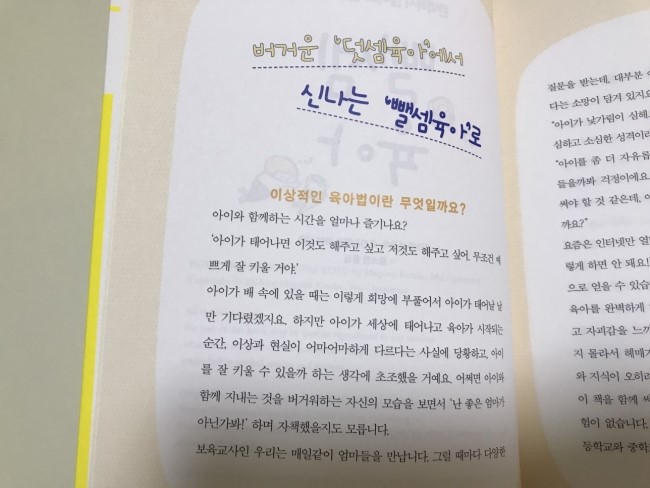 버거운 '덧셈육아'에서
신나는 '뺄셈육아'로
이상적인 육아법이란 무엇일까요?
아이와 함께하는 시간을 얼마나 즐기나요?
'아이가 태어나면 이것도 해주고 싶고 저것도 해주고 싶어. 무조건 예
쁘게 잘 키울 거야.'
아이가 배 속에 있을 때는 이렇게 희망에 부풀어서 아이가 태어날 날
만 기다렸겠지요. 하지만 아이가 세상에 태어나고 육아가 시작되는
순간, 이상과 현실이 어마어마하게 다르다는 사실에 당황하고, 아이
를 잘 키울 수 있을까 하는 생각에 초조했을 거예요. 어쩌면 아이와
함께 지내는 것을 버거워하는 자신의 모습을 보면서 '난 좋은 엄마가
아닌가봐!' 하며 자책했을지도 모릅니다.
보육교사인 우리는 매일같이 엄마들을 만납니다. 그럴 때마다 다양한
질문을 받는데, 대부분
다는 소망이 담겨 있지요
"아이가 낯가림이 심해
심하고 소심한 성격이라
"아이를 좀 더 자유롭
들을까봐 걱정이에요.
써야 할 것 같은데,
까요?"
요즘은 인터넷만 열
렇게 하면 안 돼요!
으로 얻을 수 있습
육아를 완벽하게
고 자괴감을 느끼
지 몰라서 헤매
와 지식이 오히려
이 책을 함께 써
험이 없습니다.
등학교와 중학